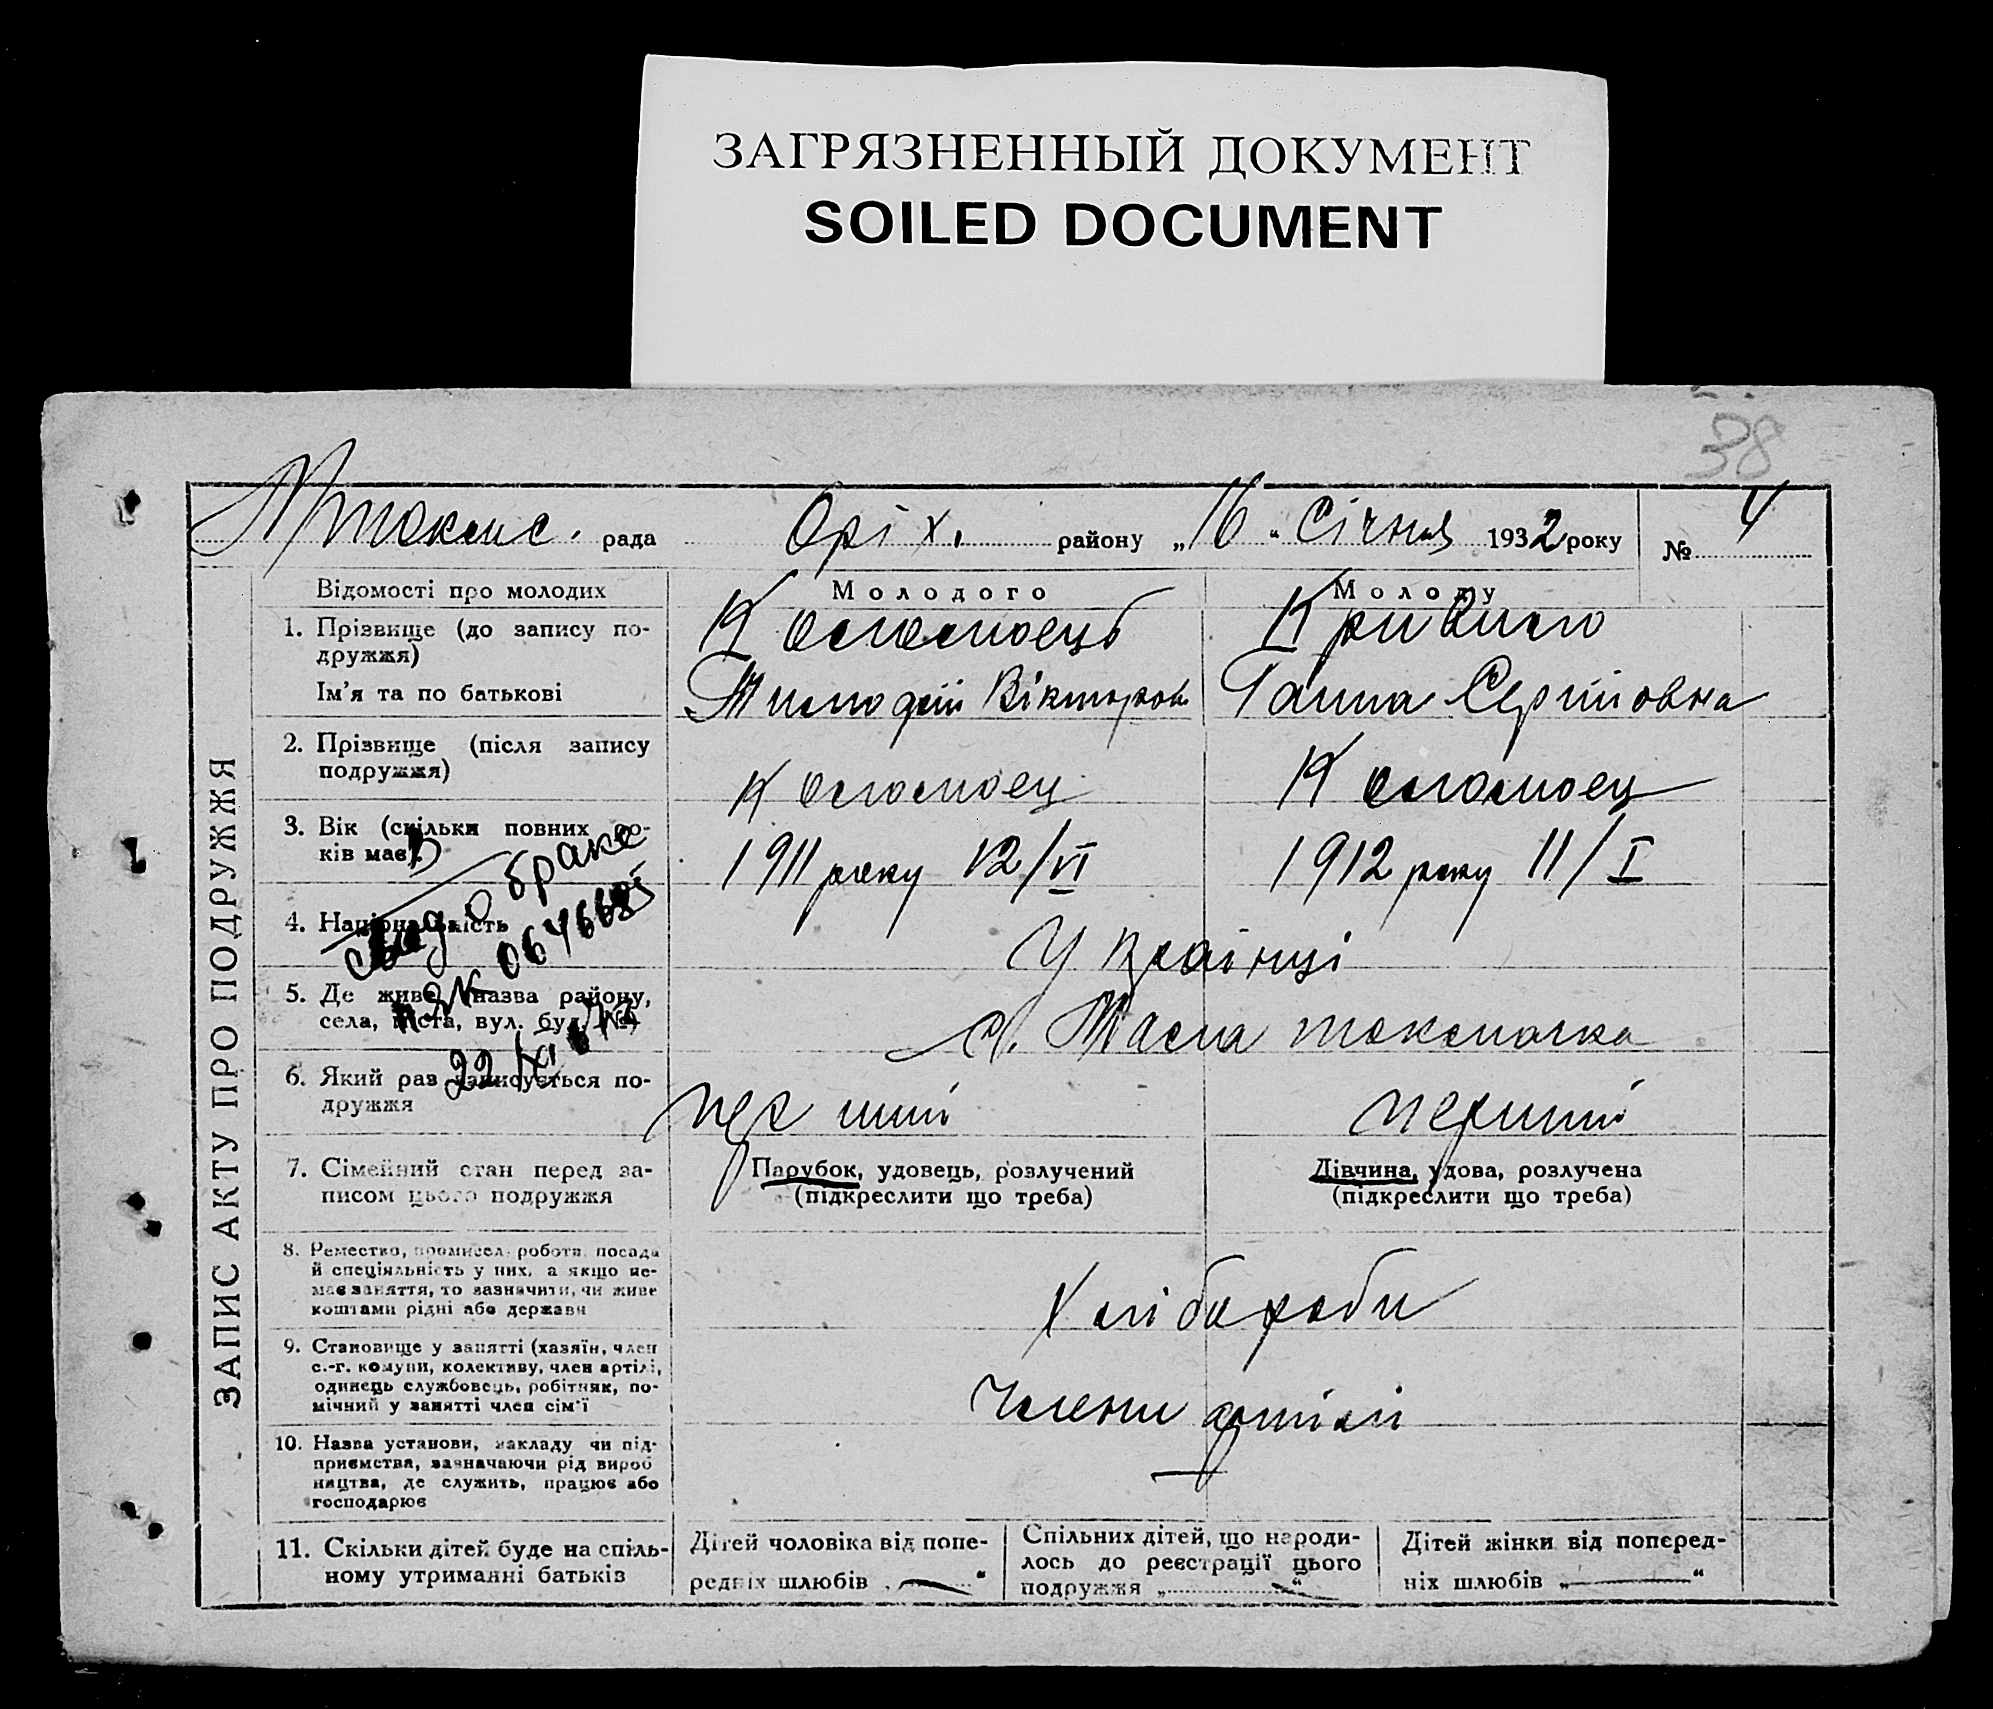 ЗАГРЯЗНЕННЫЙ ДОКУМЕНТ
SOILED DOCUMENT
38
рада Оріх. району „16“ Січня 1932 року № 4
ЗАПИС АКТУ ПРО ПОДРУЖЖЯ
Відомості про молодих
Молодого
Молоду
1. Прізвище (до запису по-
дружжя)
Ім'я та по батькові
Коломоець
Вікторов.
Ганна Сергіївна
2. Прізвище (після запису
подружжя)
Коломоец
Коломоец
3. Вік (скільки повних ро-
ків має).
1911 року 12/VI
1912 року 11/I
4. Національність
Українці
5. Де живе (назва району,
села, міста, вул. буд. №)
с. Мала Токмачка
6. Який раз записується по-
дружжя
перший
перший
7. Сімейний стан перед за-
писом цього подружжя
Парубок, удовець, розлучений
(підкреслити що треба)
Дівчина, удова, розлучена
(підкреслити що треба)
8. Ремество, промисел, робота, посада
й спеціяльність у них, а якщо не-
має заняття, то зазначити, чи живе
коштами рідні або держави
Хлібороби
9. Становище у занятті (хазяїн, член
с.-г. комуни, колективу, член артілі,
одинець службовець, робітняк, по-
мічний у занятті член сім'ї
Члени артілі
10. Назва установи, закладу чи під-
приємства, зазначаючи рід вироб
ництва, де служить, працює або
господарює
11. Скільки дітей буде на спіль-
ному утриманні батьків
Дітей чоловіка від попе-
редніх шлюбів „ — “
Спільних дітей, що народи-
лось до реєстрації цього
подружжя „ — “
Дітей жінки від поперед-
ніх шлюбів „ — “
о браке
22/XI